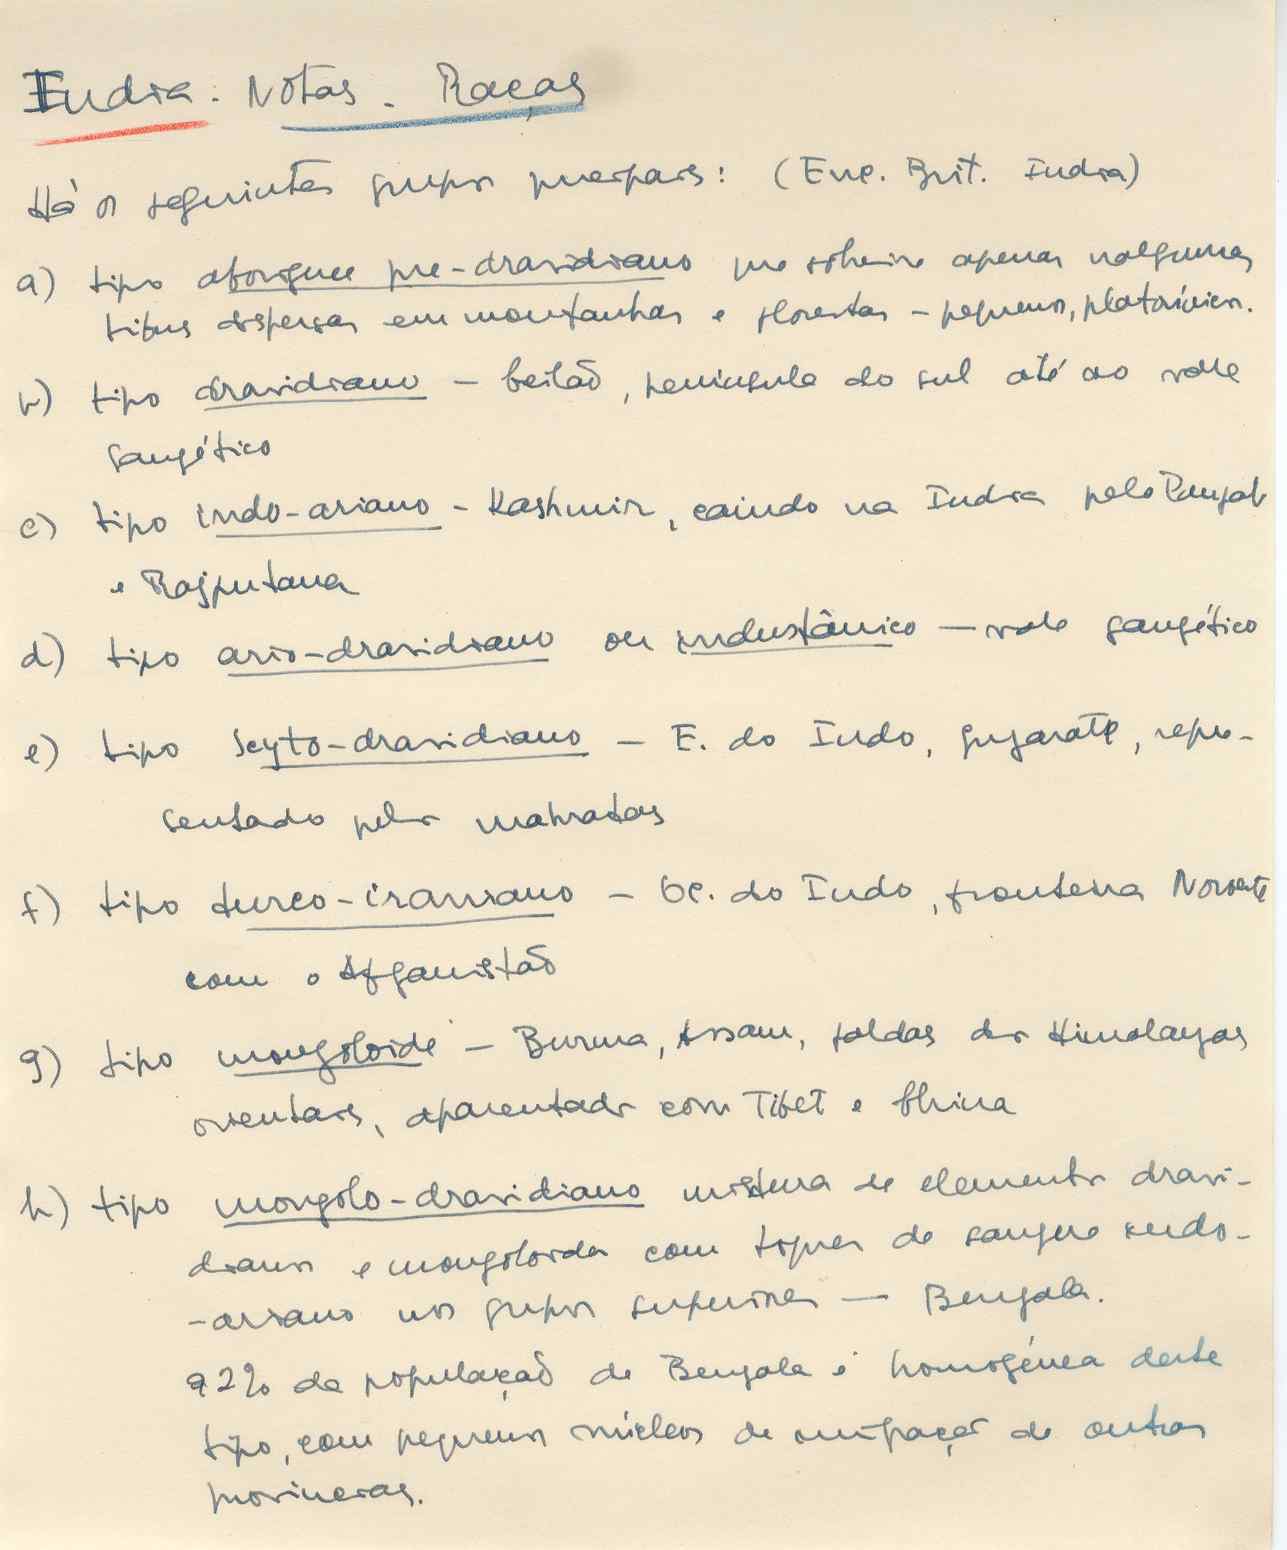 India. Notas. Raças
Há os seguintes grupos principais: (Enc. Brit. India)
a) tipo aborigene pre-dravidiano que sobrevive apenas nalgumas
tribus dispersas em montanhas e florestas - pequenos, platirrínicos.
b) tipo dravidiano - Ceilão, peninsula do sul até ao valle
gangético
c) tipo indo-ariano - Kashmir, caindo na India pelo Punjab
e Rajputana
d) tipo ario-dravidiano ou industânico - vale gangético
e) tipo scyto-dravidiano - E. do Indo, Gujarate, repre-
sentado pelos mahratas
f) tipo turco-iraniano - Oc. do Indo, fronteira Noroeste
com o Afganistão
g) tipo mongoloide - Burma, Assam, faldas dos Himalayas
orientais, aparentado com Tibet e China
h) tipo mongolo-dravidiano mistura de elementos dravi-
dianos e mongoloides com toques de sangue indo-
-ariano nos grupos superiores - Bengala.
92% da população de Bengala é homogénea deste
tipo, com pequenos núcleos de migração de outras
provincias.